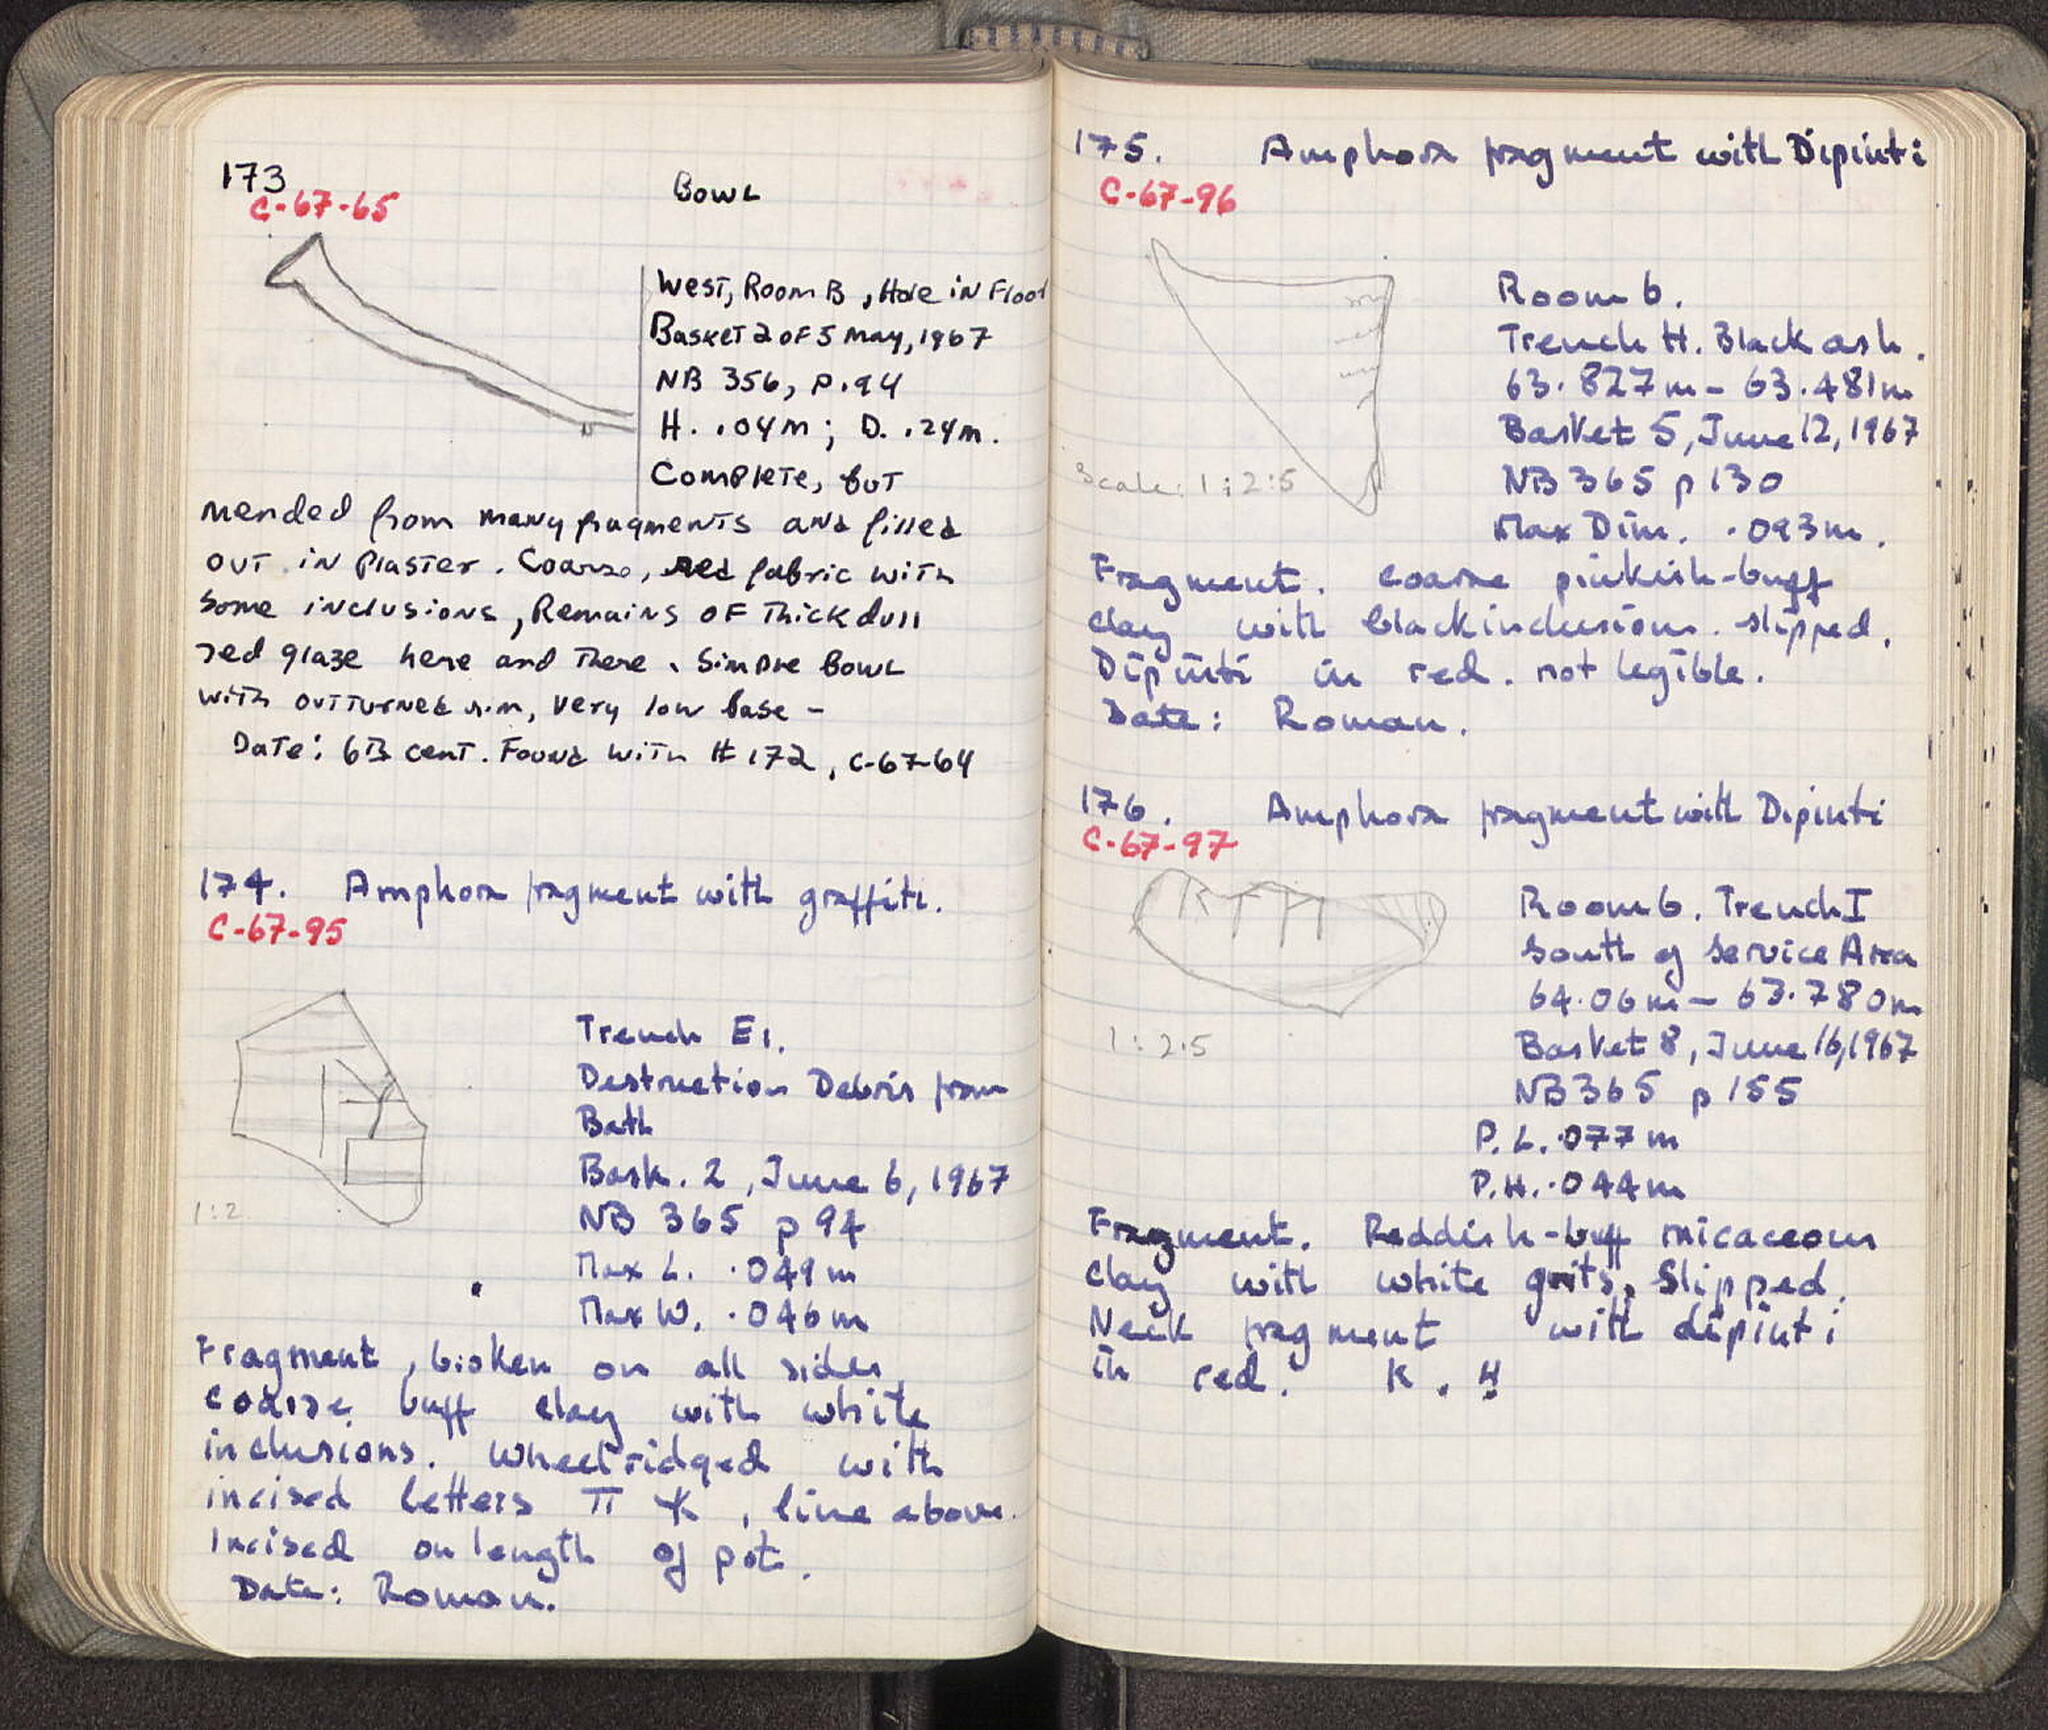 173
C-67-65
Bowl
West, Room B, Hole in Floor
Basket 2 of 5 May, 1967
NB 356, p.94
H. .04m; D. .24m.
Complete, but
mended from many fragments and filled
out in plaster. Coarse, red fabric with
some inclusions, Remains of thick dull
red glaze here and there. Simple bowl
with outturned rim, very low base -
Date: 6th cent. Found with # 172, C-67-64
174. Amphora fragment with graffiti.
C-67-95
Trench E1.
Destruction Debris from
Bath
Bask. 2, June 6, 1967
NB 365 p 94
Max L. .049m
Max W. .046m
1:2
Fragment, broken on all sides
coarse buff clay with white
inclusions. Wheelridged with
incised letters π, line above.
Incised on length of pot.
Date: Roman.
175. Amphora fragment with Dipinti
C-67-96
Room 6.
Trench H. Black ash.
63.827m - 63.481m
Basket 5, June 12, 1967
NB 365 p 130
Max Dim. .093m.
Scale: 1:2:5
Fragment. coarse pinkish-buff
clay with black inclusions. slipped.
Dipinti in red. not legible.
Date: Roman.
176. Amphora fragment with Dipinti
C-67-97
Room 6. Trench I
South of Service Area
64.06m - 63.780m
Basket 8, June 16, 1967
NB 365 p 155
P.L. .077m
P.H. .044m
1:2.5
Fragment. Reddish-buff micaceous
clay with white grits. Slipped.
Neck fragment with dipinti
in red. K. H